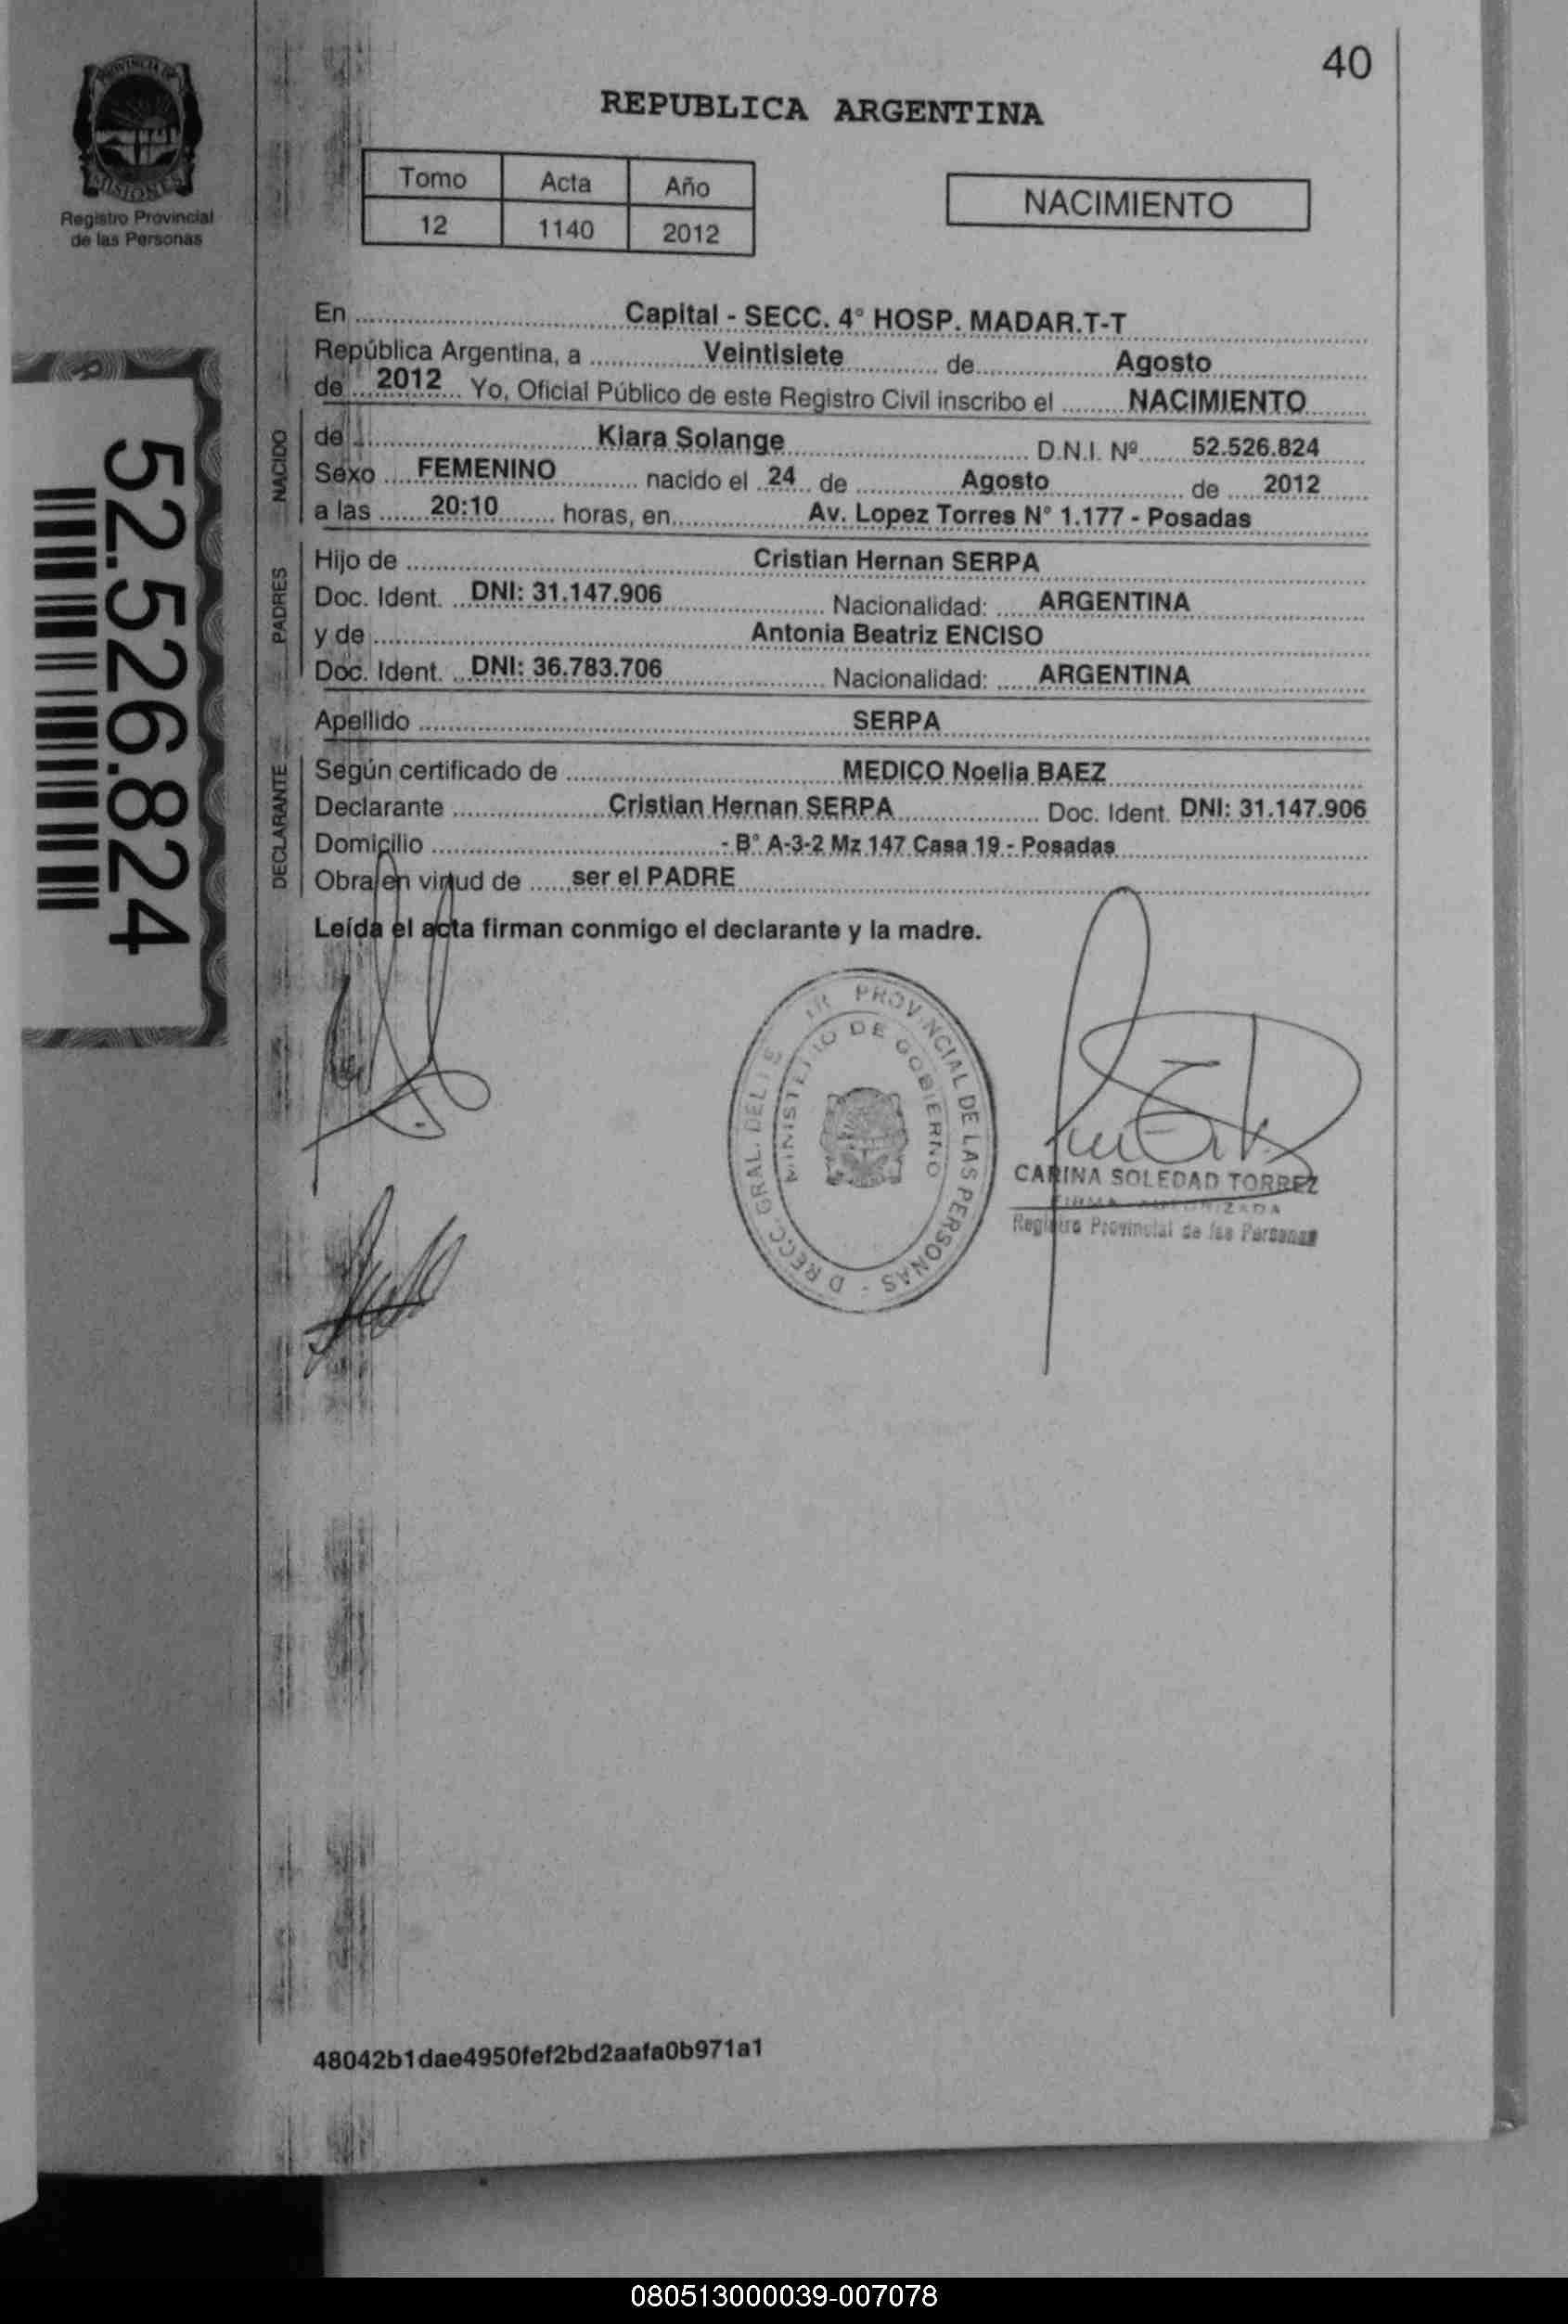 40
PROVINCIA DE
MISIONES
Registro Provincial
de las Personas
REPUBLICA ARGENTINA
Tomo Acta Año
12 1140 2012
NACIMIENTO
52.526.824
En Capital - SECC. 4° HOSP. MADAR.T-T
República Argentina, a Veintisiete de Agosto
de 2012 Yo, Oficial Público de este Registro Civil inscribo el NACIMIENTO
NACIDO
de Kiara Solange D.N.I. Nº 52.526.824
Sexo FEMENINO nacido el 24 de Agosto de 2012
a las 20:10 horas, en Av. Lopez Torres N° 1.177 - Posadas
PADRES
Hijo de Cristian Hernan SERPA
Doc. Ident. DNI: 31.147.906 Nacionalidad: ARGENTINA
y de Antonia Beatriz ENCISO
Doc. Ident. DNI: 36.783.706 Nacionalidad: ARGENTINA
Apellido SERPA
DECLARANTE
Según certificado de MEDICO Noelia BAEZ
Declarante Cristian Hernan SERPA Doc. Ident. DNI: 31.147.906
Domicilio - B° A-3-2 Mz 147 Casa 19 - Posadas
Obra en virtud de ser el PADRE
Leída el acta firman conmigo el declarante y la madre.
PROVINCIAL DE LAS PERSONAS
MINISTERIO DE GOBIERNO
CARINA SOLEDAD TORREZ
FIRMA AUTORIZADA
Registro Provincial de las Personas
48042b1dae4950fef2bd2aafa0b971a1
080513000039-007078